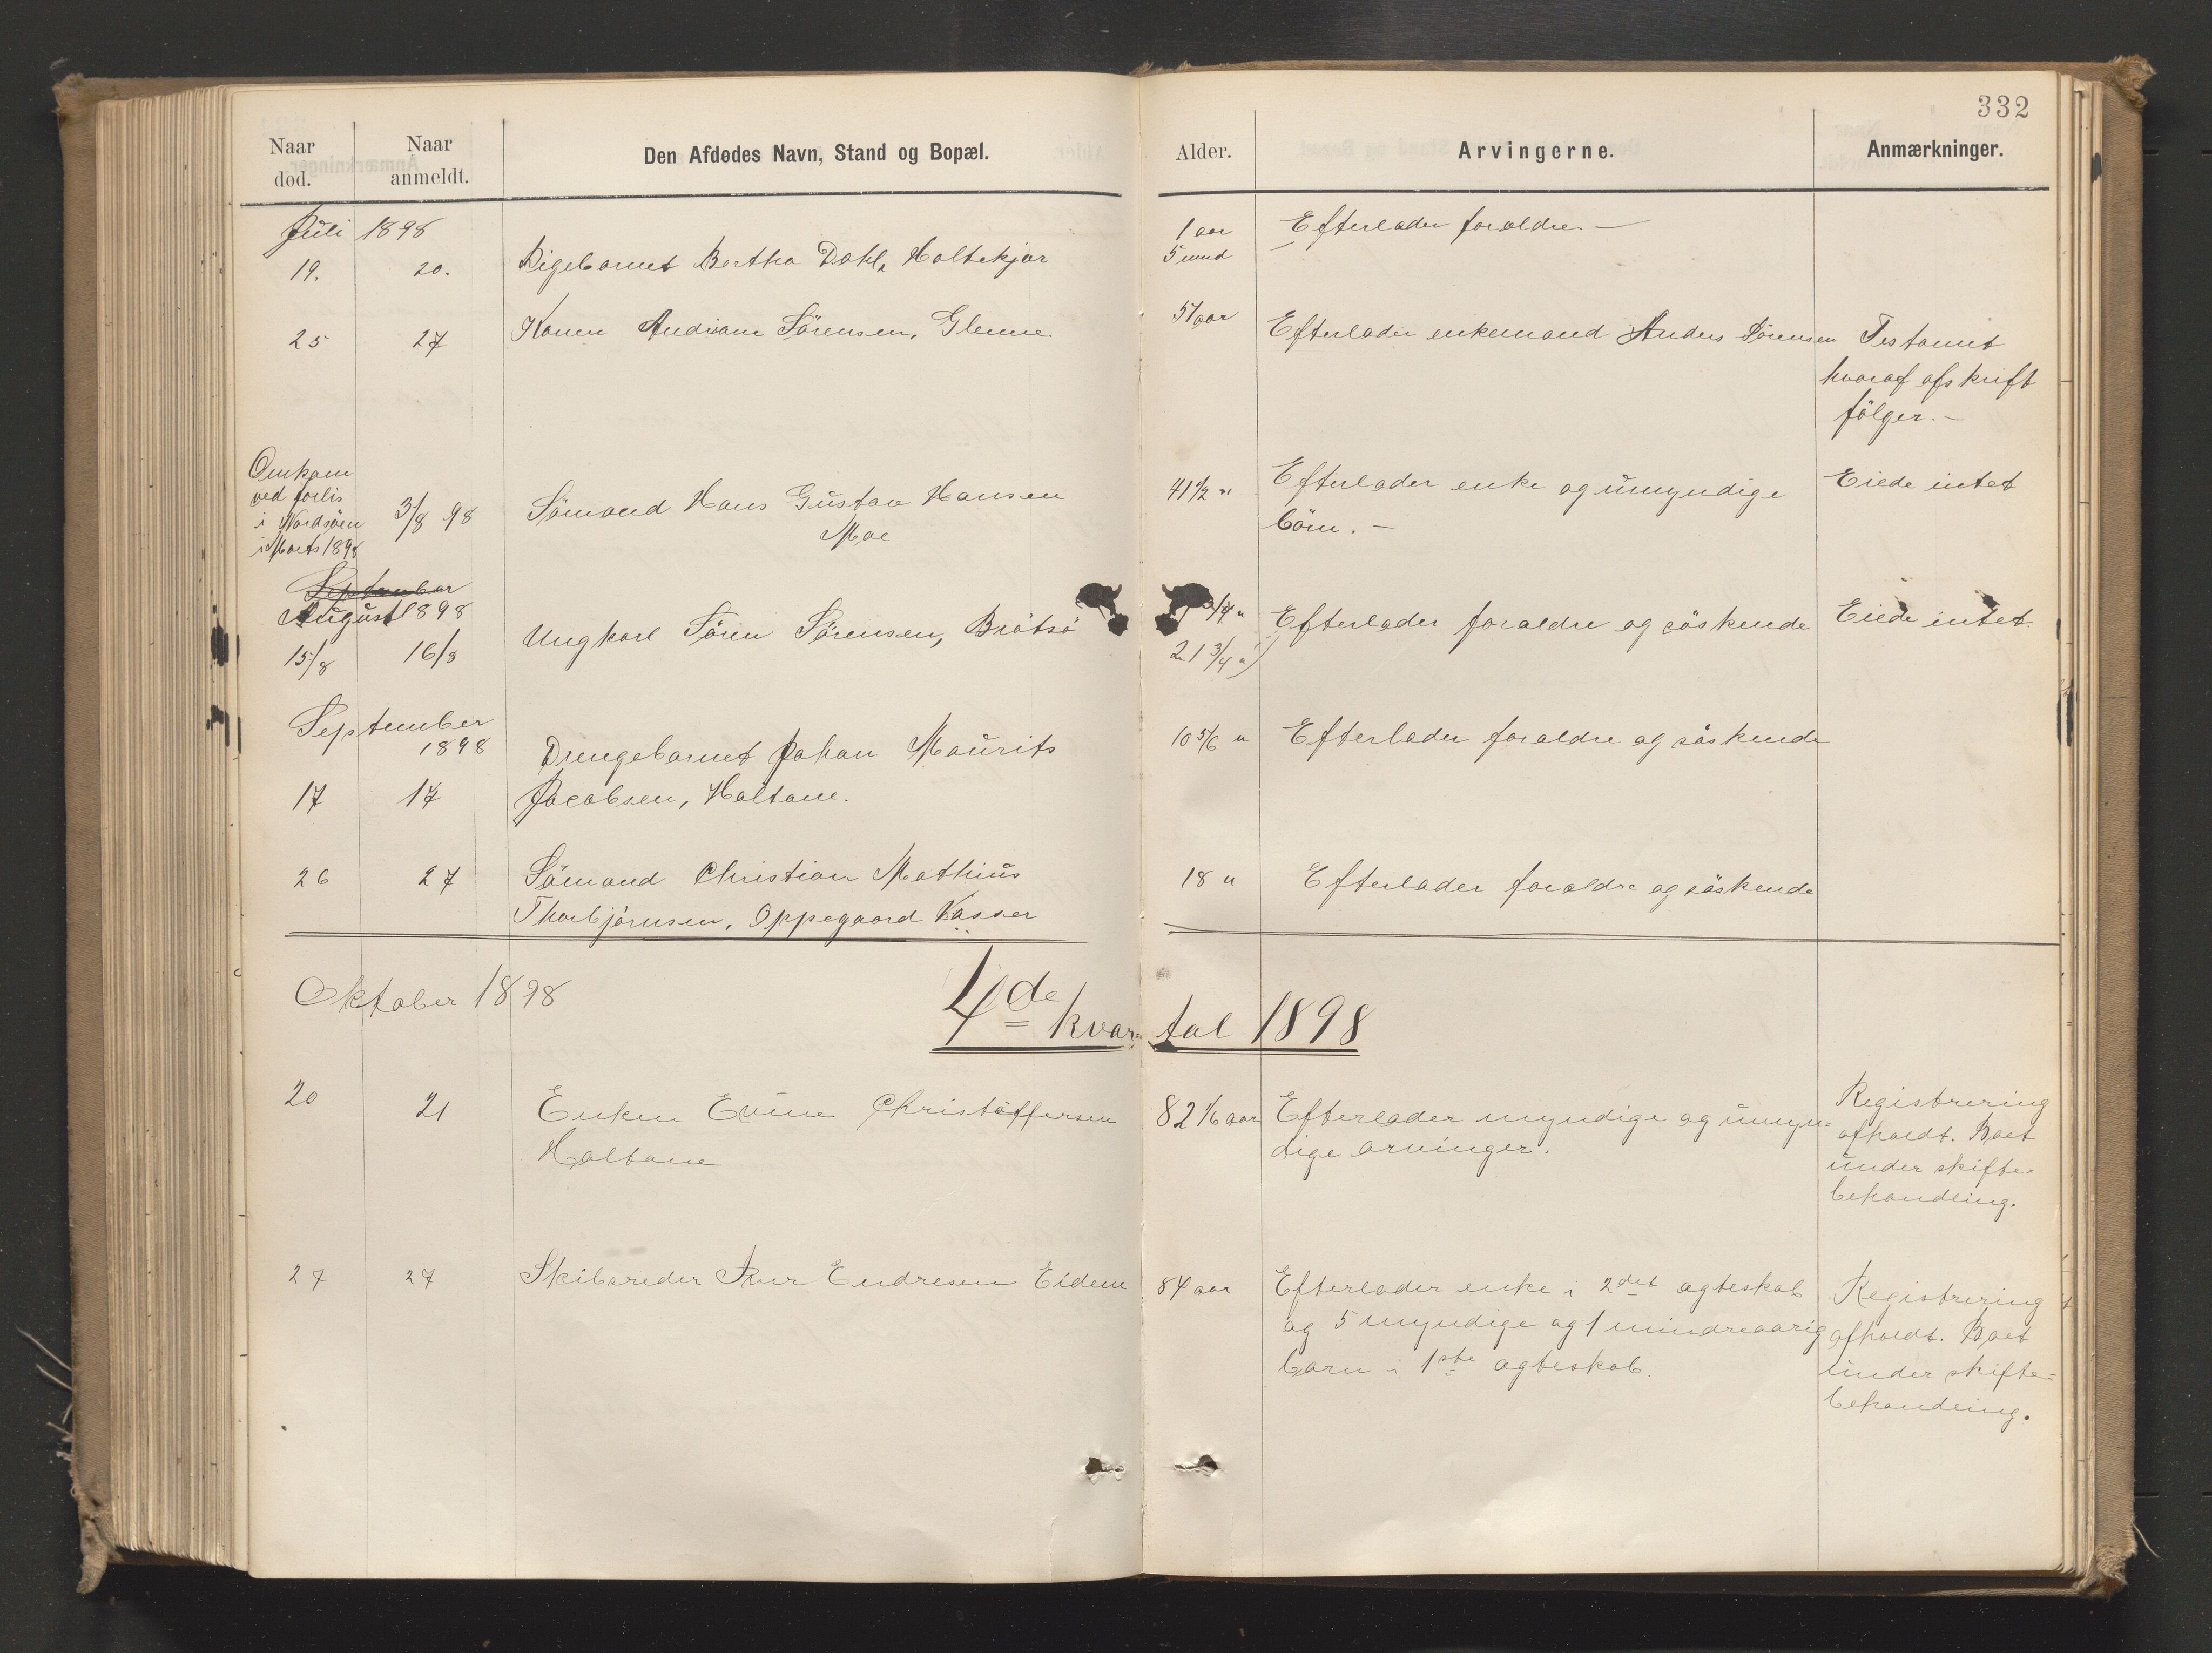 332
Naar død. Naar anmeldt. Den Afdødes Navn, Stand og Bopæl. Alder. Arvingerne. Anmærkninger.
Juli 1898
19. 20. Pigebarnet Bertha Dahl, Holtekjær 1 aar 5 mnd Efterlader forældre. —
25 27 Konen Andriane Sörensen, Glenne 51 aar Efterlader enkemand Anders Sörensen Testamt
hvoraf afskrift
fölger. —
Omkom
ved forlis
i Nordsöen
i Marts 1898
3/8 98 Sömand Hans Gustav Hansen 41 1/2 " Efterlader enke og umyndige Eiede intet
Moe börn. —
September
August 1898
15/8 16/8 Ungkarl Sören Sörensen, Brötsö 3/4 " Efterlader forældre og söskende Eiede intet
21 3/4 "
September
1898
Drengebarnet Johan Maurits 10 5/6 " Efterlader forældre og söskende
17 17 Jacobsen, Holtane.
26 27 Sömand Christian Mathius 18 " Efterlader forældre og söskende
Thorbjörnsen, Oppegaard Vasser
Oktober 1898
4de kvar- tal 1898
20 21 Enken Christoffersen 82 1/6 aar Efterlader myndige og umyn- Registrering
Holtane dige arvinger. afholdt. Boet
under skifte-
behandling.
27 27 Skibsreder Iver Endresen Eidene 84 aar Efterlader enke i 2det ægteskab Registrering
og 5 myndige og 1 mindreaarig afholdt. Boet
barn i 1ste ægteskab. under skifte-
behandling.